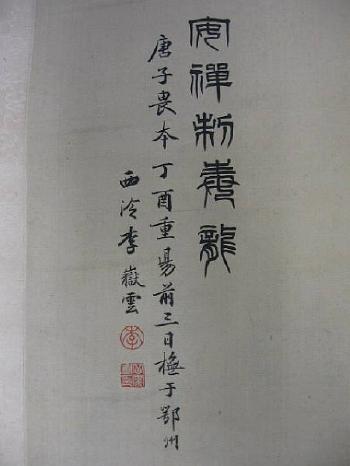 安禪制毒龍
唐子畏本丁酉重昜前三日橅于鄂州
西泠李嶽雲
李